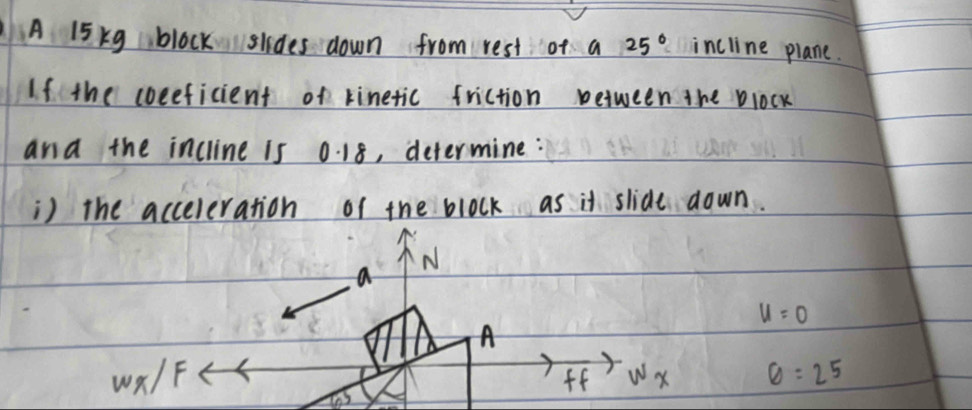 A 15kg block slides down from rest of a 25° incline plane.
If the coeeficient of kinetic friction between the block
and the incline is 0.18, determine:
i) the acceleration of the block as it slide down.
N
a
u = 0
A
Wx/F
ff Wx
θ = 25